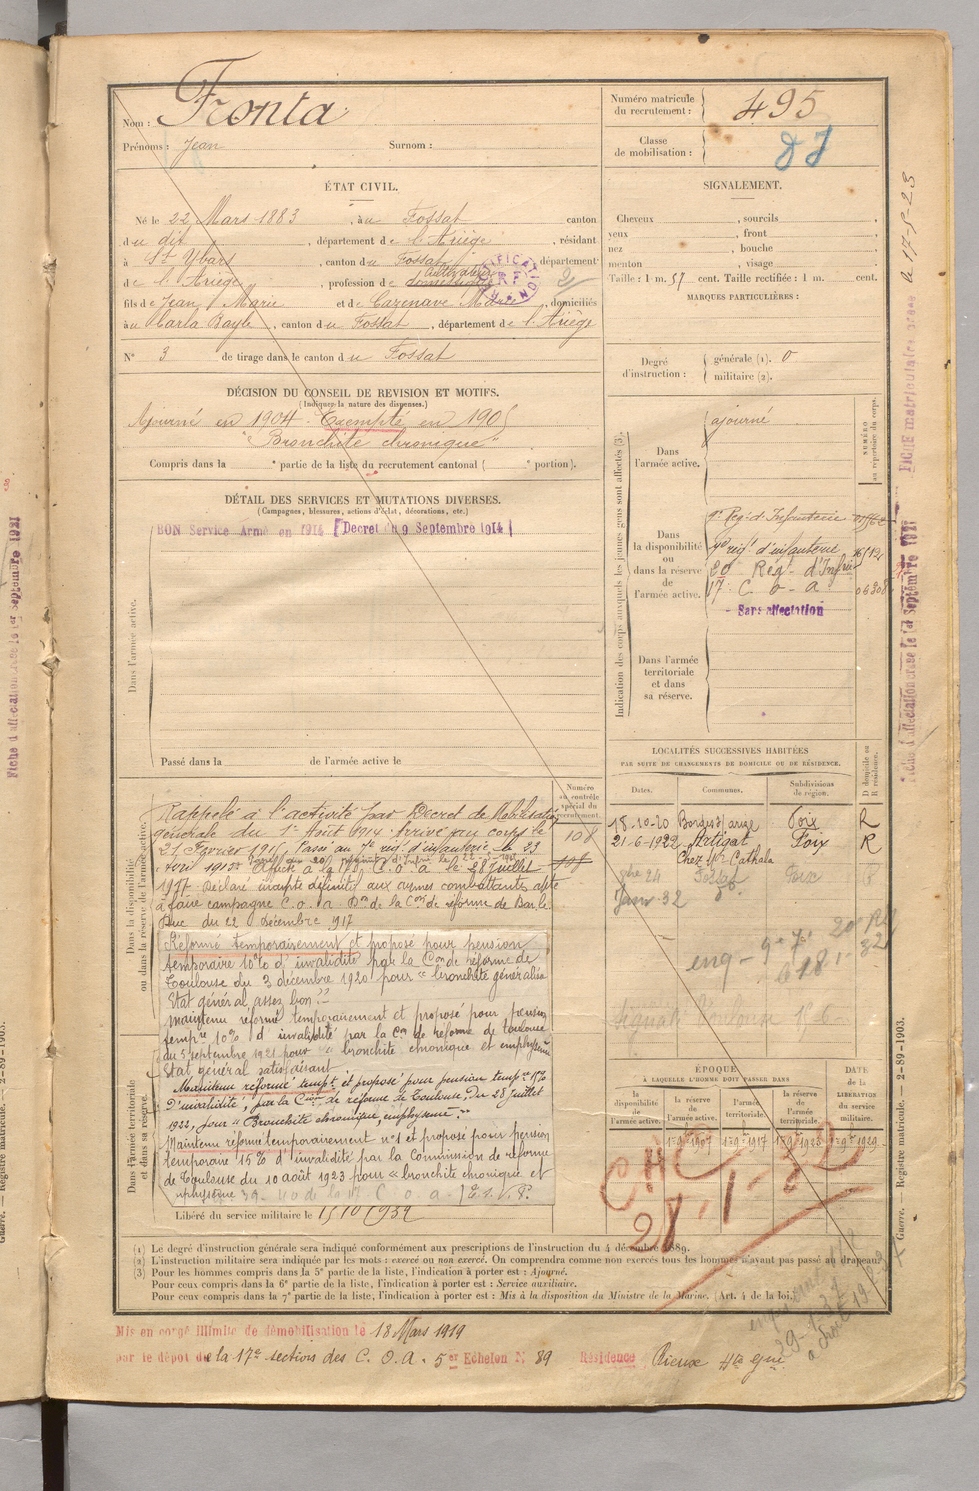 Nom : Fronta
Prénoms : Jean Surnom :
Numéro matricule du recrutement : 495
Classe de mobilisation : 87
ÉTAT CIVIL.
Né le 22 Mars 1883, à u Fossat canton
d u dit, département d e l'Ariège, résidant
à St Ybars, canton d u Fossat, département
d e l'Ariège, profession de cultivateur
fils de Jean Marie et de Cazenave, domiciliés
à u Carla Bayle, canton d u Fossat, département d e l'Ariège
N° 3 de tirage dans le canton d u Fossat
SIGNALEMENT.
Cheveux , sourcils ,
yeux , front ,
nez , bouche ,
menton , visage .
Taille : 1 m. 57 cent. Taille rectifiée : 1 m. cent.
MARQUES PARTICULIÈRES :
Degré d'instruction :
générale (1). 0
militaire (2).
DÉCISION DU CONSEIL DE REVISION ET MOTIFS.
(Indiquer la nature des dispenses.)
Ajourné en 1904. Exempté en 1905
"Bronchite chronique"
Compris dans la e partie de la liste du recrutement cantonal ( e portion).
DÉTAIL DES SERVICES ET MUTATIONS DIVERSES.
(Campagnes, blessures, actions d'éclat, décorations, etc.)
BON Service Armé en 1914 [Decret du 9 Septembre 1914]
Dans l'armée active.
Passé dans la de l'armée active le
Indication des corps auxquels les jeunes gens sont affectés (3).
NUMÉRO au répertoire du corps.
Dans l'armée active.
ajourné
Dans la disponibilité ou dans la réserve de l'armée active.
9e Reg. d'Infanterie
7e reg. d'infanterie
20 Reg. d'Infrie
17e C. O. A. 06308
Sans affectation
Dans l'armée territoriale et dans sa réserve.
LOCALITÉS SUCCESSIVES HABITÉES
PAR SUITE DE CHANGEMENTS DE DOMICILE OU DE RÉSIDENCE.
Dates. Communes. Subdivisions de région. D domicile ou R résidence.
18-10-20 Bordes s/arize Foix R
21-6-1922 Artigat Foix R
Chez Mr Cathala
Fossat Foix
Janv 32
Numéro au contrôle spécial du recrutement.
108
Dans la disponibilité ou dans la réserve de l'armée active.
Rappelé à l'activité par Decret de Mobilisation
générale du 1er Août 1914. Arrivé au corps le
21 Février 1915. Passé au 7e reg. d'infanterie le 23
Avril 1915. Affecté à la 17e C. O. A. le 28 Juillet
1917. Déclaré inapte définitif aux armes combattantes apte
à faire campagne C. O. A. Don de la Con de réforme de Bar le
Duc du 22 Décembre 1917
Réformé temporairement et proposé pour pension
temporaire 10% d'invalidité par la Con de réforme de
Toulouse du 3 décembre 1920 pour "bronchite généralisée
Etat général assez bon"
Maintenu réformé temporairement et proposé pour pension
tempre 10% d'invalidité par la Con de réforme de Toulouse
du 5 septembre 1921 pour "bronchite chronique et emphysème
Etat général satisfaisant
Maintenu réformé tempt et proposé pour pension tempre 15%
d'invalidité, par la Con de réforme de Toulouse, du 28 Juillet
1922, pour "Bronchite chronique, emphysème".
Maintenu réformé temporairement n°1 et proposé pour pension
temporaire 15% d'invalidité par la Commission de réforme
de Toulouse du 10 août 1923 pour "bronchite chronique et
Dans l'armée territoriale et dans sa réserve.
Libéré du service militaire le 15 10 1932
ÉPOQUE
À LAQUELLE L'HOMME DOIT PASSER DANS
la disponibilité de l'armée active. la réserve de l'armée active. l'armée territoriale. la réserve de l'armée territoriale.
DATE de la LIBÉRATION du service militaire.
1 9bre 1907 1 9bre 1917 1 9bre 1923 1 9bre 1929
28-1-32
(1) Le degré d'instruction générale sera indiqué conformément aux prescriptions de l'instruction du 4 décembre 1889.
(2) L'instruction militaire sera indiquée par les mots : exercé ou non exercé. On comprendra comme non exercés tous les hommes n'ayant pas passé au drapeau.
(3) Pour les hommes compris dans la 5e partie de la liste, l'indication à porter est : Ajourné.
Pour ceux compris dans la 6e partie de la liste, l'indication à porter est : Service auxiliaire.
Pour ceux compris dans la 7e partie de la liste, l'indication à porter est : Mis à la disposition du Ministre de la Marine. (Art. 4 de la loi.)
Mis en congé illimité de démobilisation le 18 Mars 1919
par le dépôt de la 17e section des C. O. A. 5er Echelon N° 89 Résidence Rieux Hte Gne
FICHE matriculaire le 17-5-23
Fiche d'affectation le 1er Septembre 1921
Guerre. Registre matricule. — 2-89-1903.